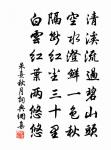 清溪流過碧山頭
空水澄鮮一色秋
隔斷紅塵三十里
白雲紅葉兩悠悠
朱熹秋月 詞典網集